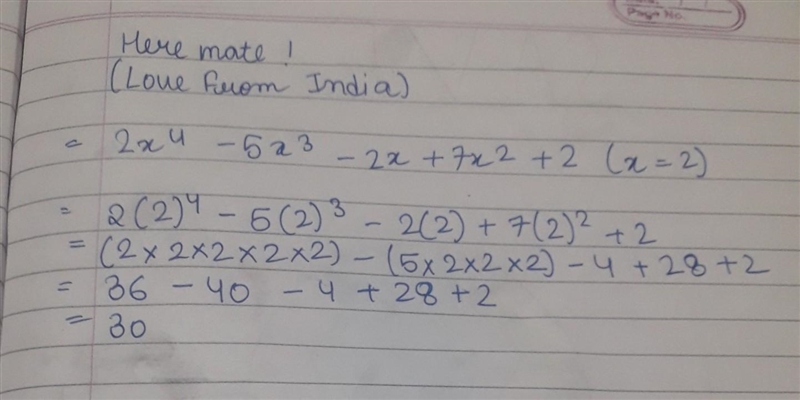 Page No.
Here mate !
(Love from India)
= 2x⁴ - 5x³ - 2x + 7x² + 2 (x = 2)
= 2(2)⁴ - 5(2)³ - 2(2) + 7(2)² + 2
= (2×2×2×2×2) - (5×2×2×2) - 4 + 28 + 2
= 36 - 40 - 4 + 28 + 2
= 30